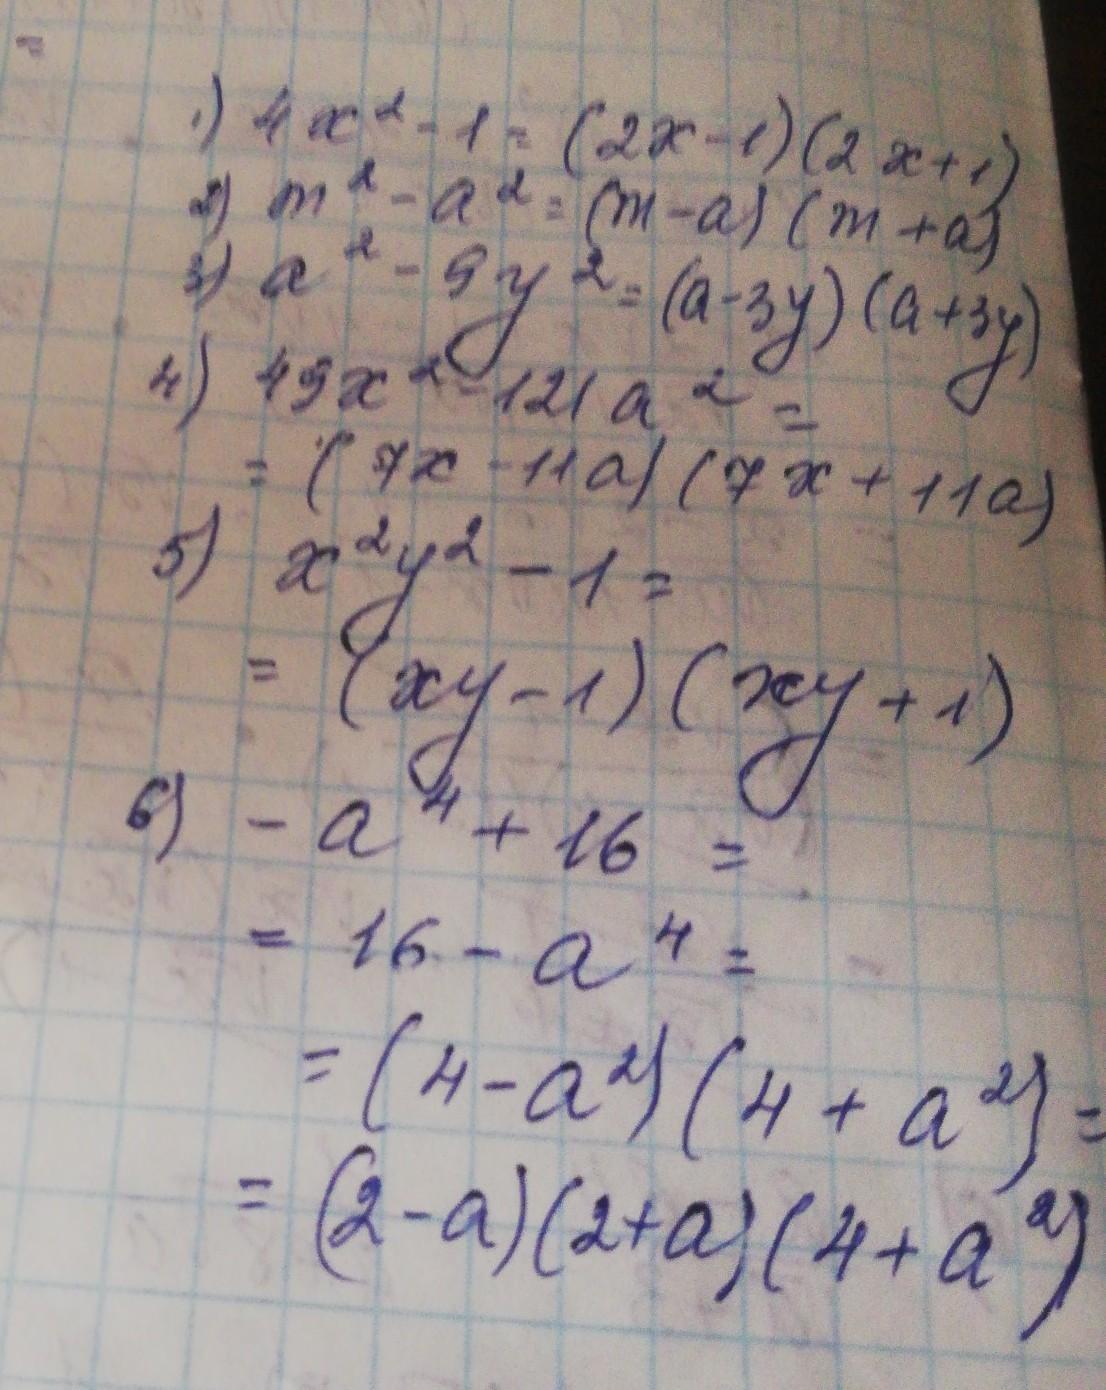 =
1) 4x² - 1 = (2x - 1)(2x + 1)
2) m² - a² = (m - a)(m + a)
3) a² - 9y² = (a - 3y)(a + 3y)
4) 49x² - 121a² =
= (7x - 11a)(7x + 11a)
5) x²y² - 1 =
= (xy - 1)(xy + 1)
6) - a⁴ + 16 =
= 16 - a⁴ =
= (4 - a²)(4 + a²) =
= (2 - a)(2 + a)(4 + a²)